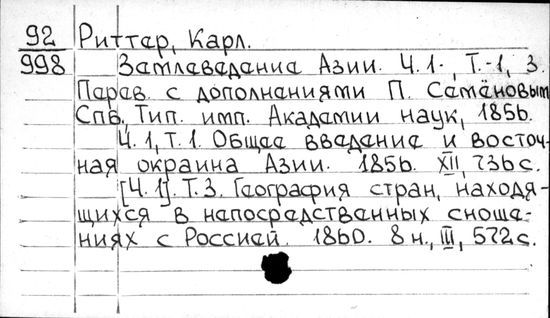 92
998
Риттер, Карл.
Землеведение Азии. Ч.1-, Т.-1, 3.
Перев. с дополнениями П. Семёновым
Спб. Тип. имп. Академии наук, 1856.
Ч.1, Т.1. Общее введение и восточ-
ная окраина Азии. 1856. XII, 736 с.
[Ч.1]. Т.3. География стран, находя-
щихся в непосредственных сноше-
ниях с Россией. 1860. 8 н., III, 572 с.